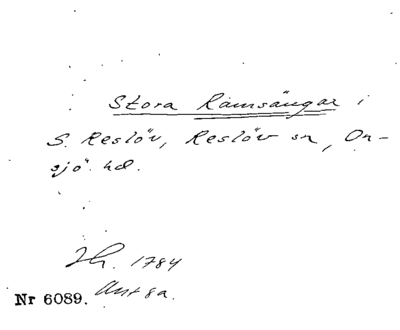 Stora Ramsängar i
S. Reslöv, Reslöv sn, On-
sjö hd.
1784
Nr 6089.